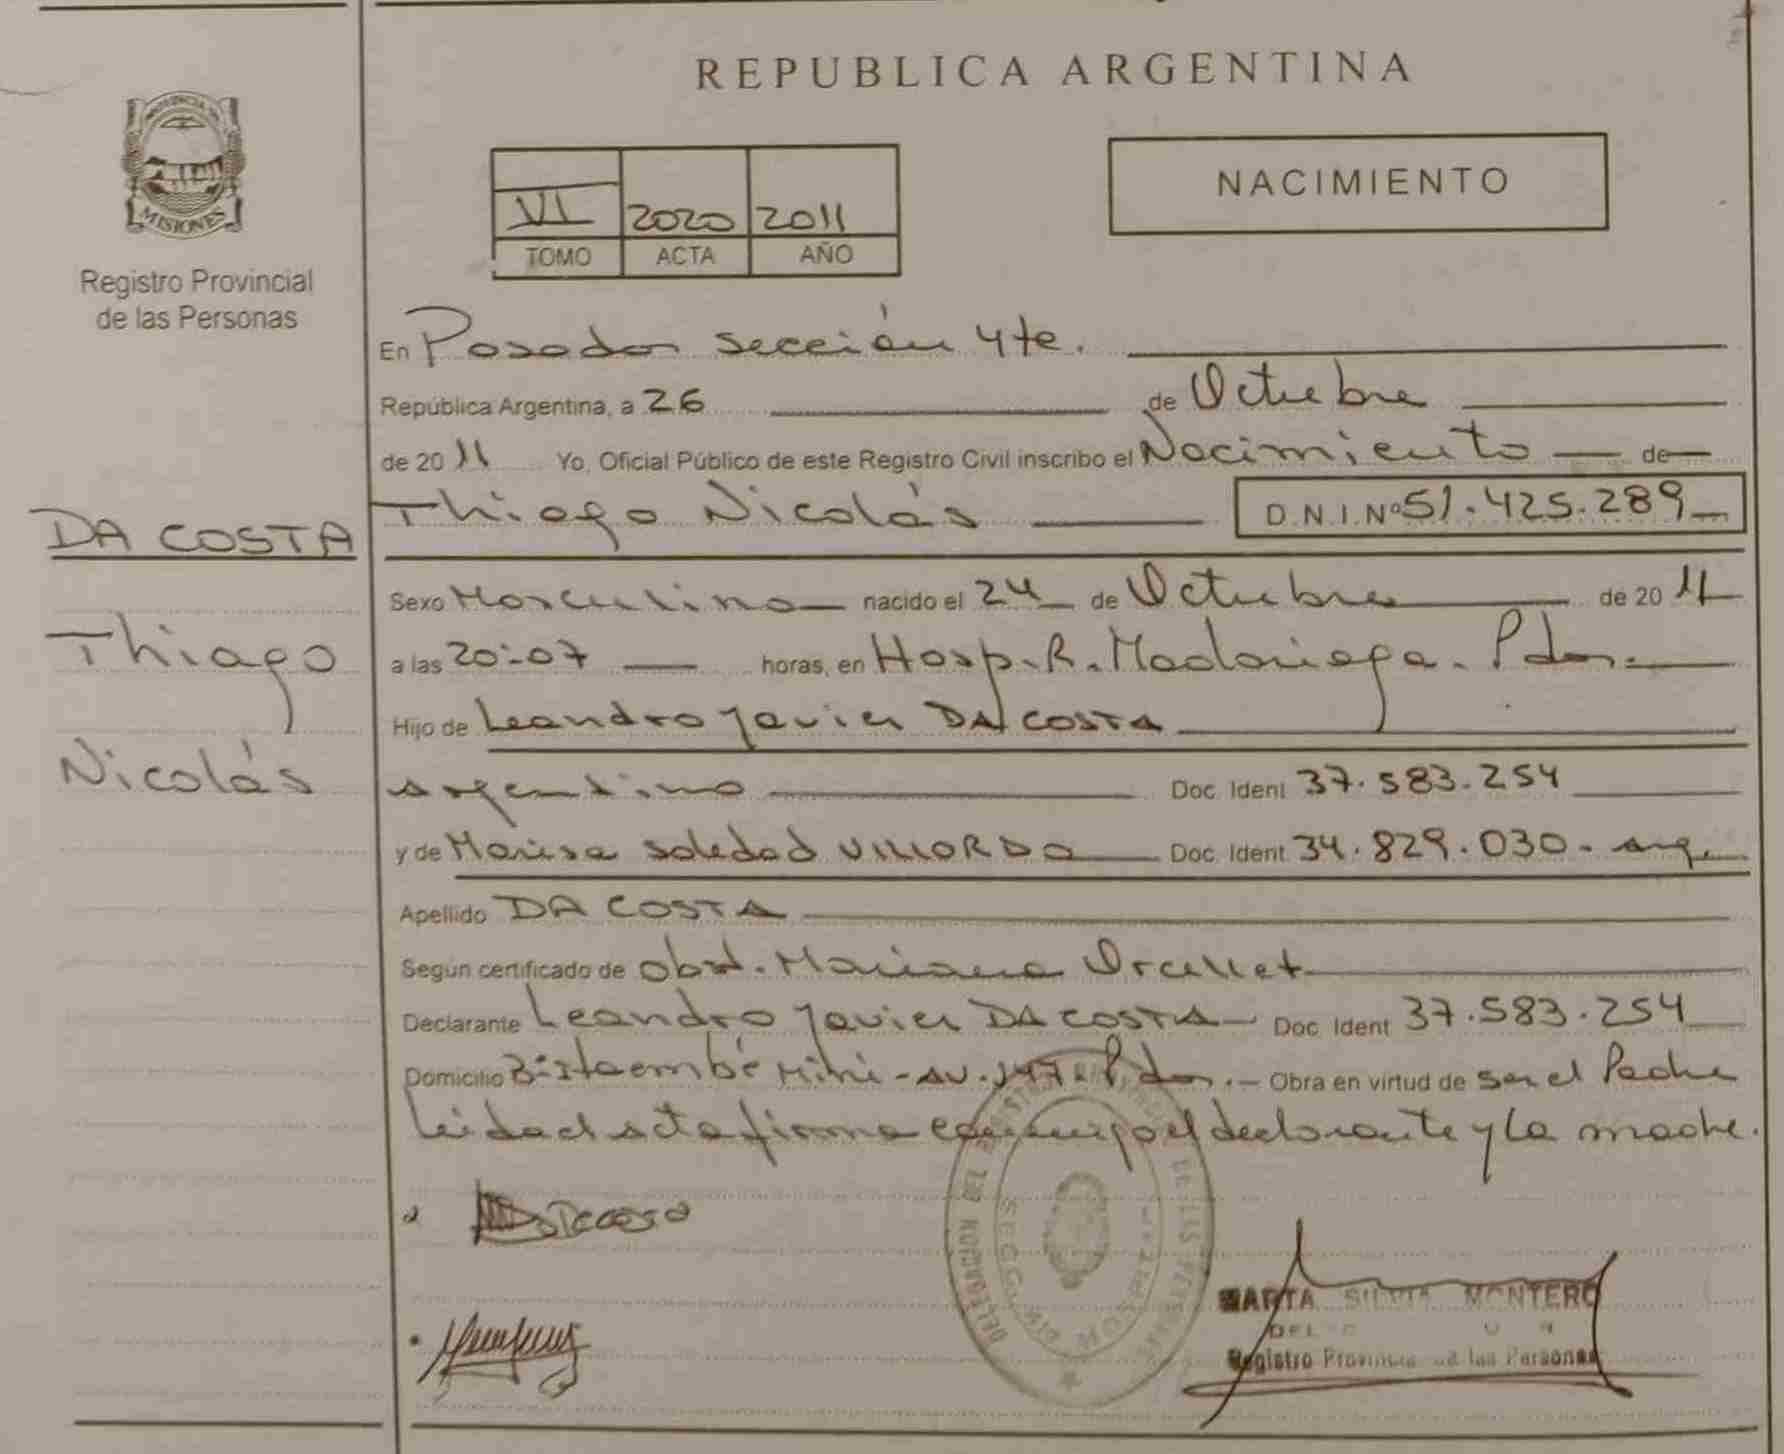 REPUBLICA ARGENTINA
PROVINCIA DE
MISIONES
Registro Provincial
de las Personas
VI 2020 2011
TOMO ACTA AÑO
NACIMIENTO
En Posadas sección 4te.
República Argentina, a 26 de Octubre
de 2011 Yo, Oficial Público de este Registro Civil inscribo el Nacimiento de
Thiago Nicolás D.N.I.Nº 51.425.289
DA COSTA
Thiago
Nicolás
Sexo Masculino nacido el 24 de Octubre de 2011
a las 20:07 horas, en Hosp. R. Madariaga. Pdas.
Hijo de Leandro Javier DA COSTA
argentino Doc. Ident 37.583.254
y de Marisa Soledad VILLORDO Doc. Ident. 34.829.030- arg.
Apellido DA COSTA
Según certificado de obst. Mariana Orcellet
Declarante Leandro Javier DA COSTA Doc. Ident 37.583.254
Domicilio Bº Itaembé Miní - AV. 147 - Pdas. Obra en virtud de ser el Padre
Leida el acta firma conmigo el declarante y la madre.
DELEGACION DEL REGISTRO DE LAS PERSONAS
MARTA SILVIA MONTERO
Registro Provincial de las Personas